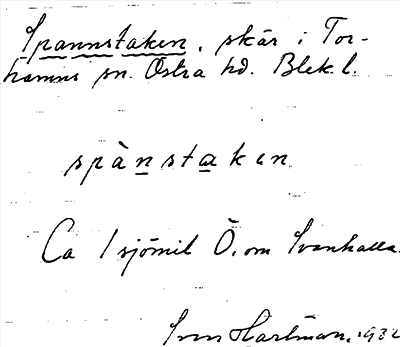 Spannstaken, skär i Tor-
hamns sn. Östra hd. Blek. l.
spànstaken
Ca 1 sjömil Ö. om Svenhalla.
Sven Hartman. 1932